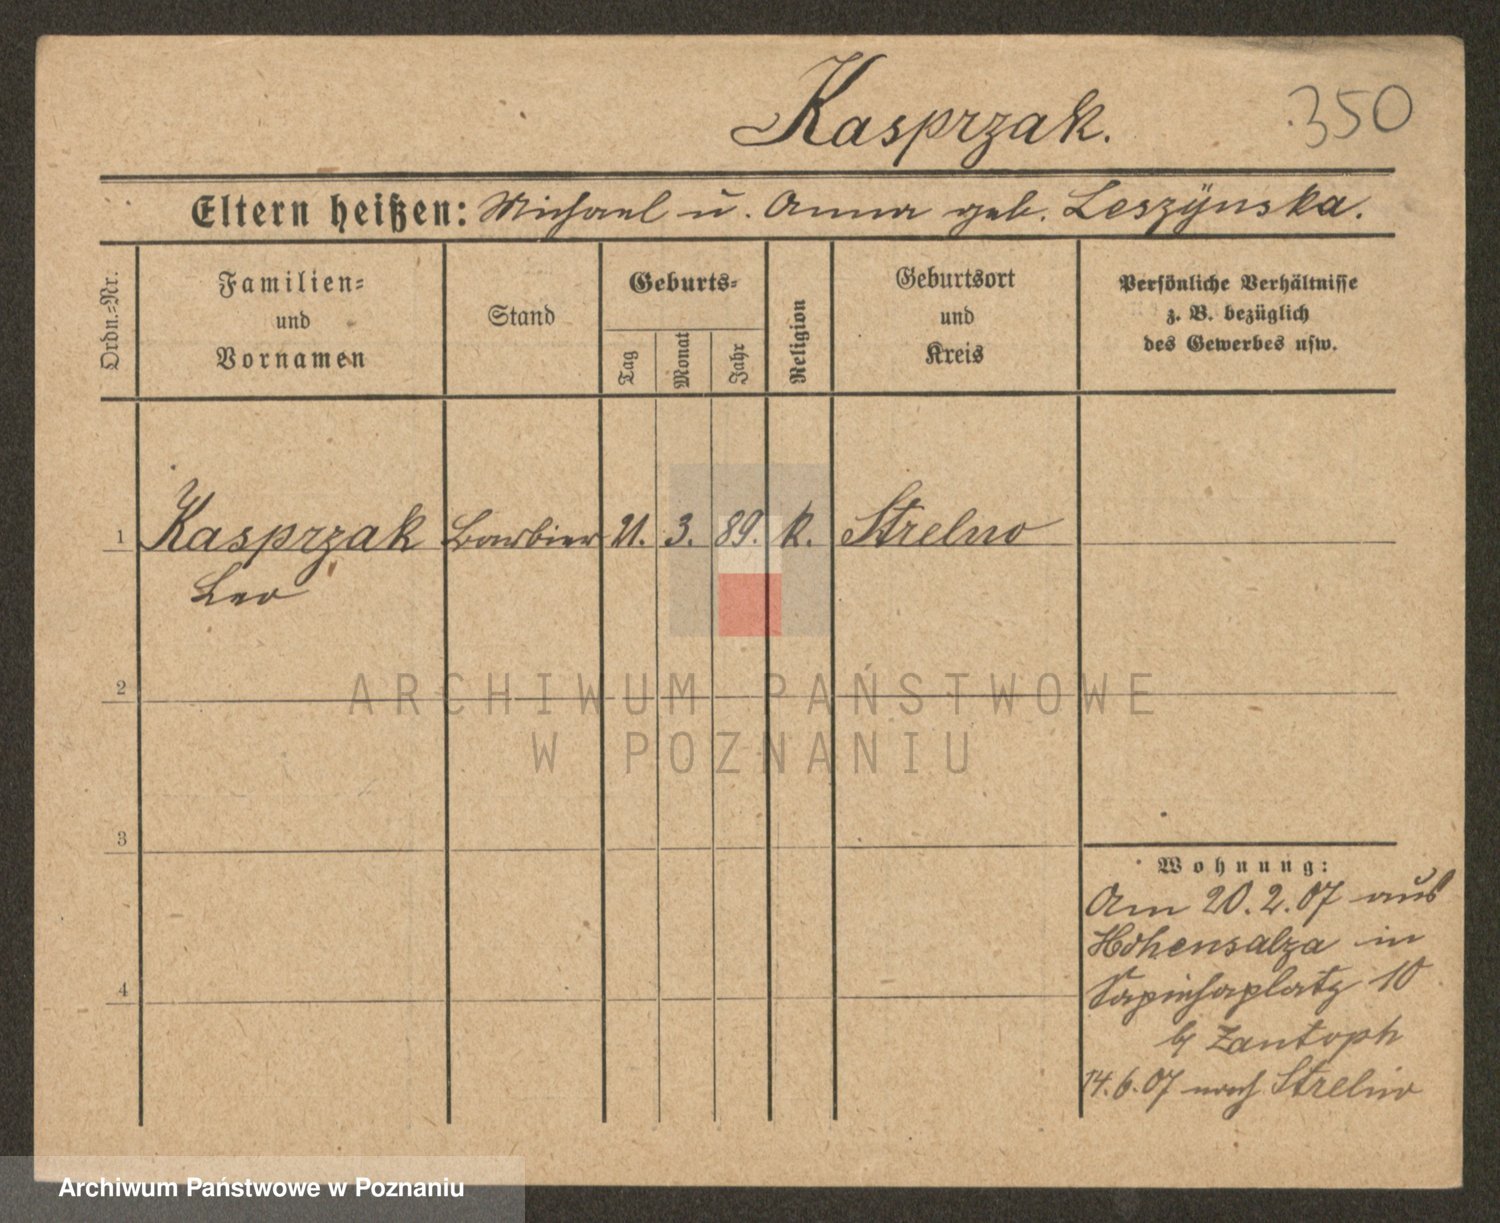 Kasprzak.
350
Eltern heißen: Michael u. Anna geb. Leszÿnska.
Ordn.=Nr.
Familien=
und
Vornamen
Stand
Geburts=
Tag
Monat
Jahr
Religion
Geburtsort
und
Kreis
Persönliche Verhältnisse
z. B. bezüglich
des Gewerbes usw.
1 Kasprzak Barbier 21. 3. 89. k. Strelno
Leo
2
3
4
Wohnung:
Am 20.2.07 aus
Hohensalza in
Sapiehaplatz 10
b/ Zantoph
14.6.07 nach Strelno
ARCHIWUM PAŃSTWOWE
W POZNANIU
Archiwum Państwowe w Poznaniu